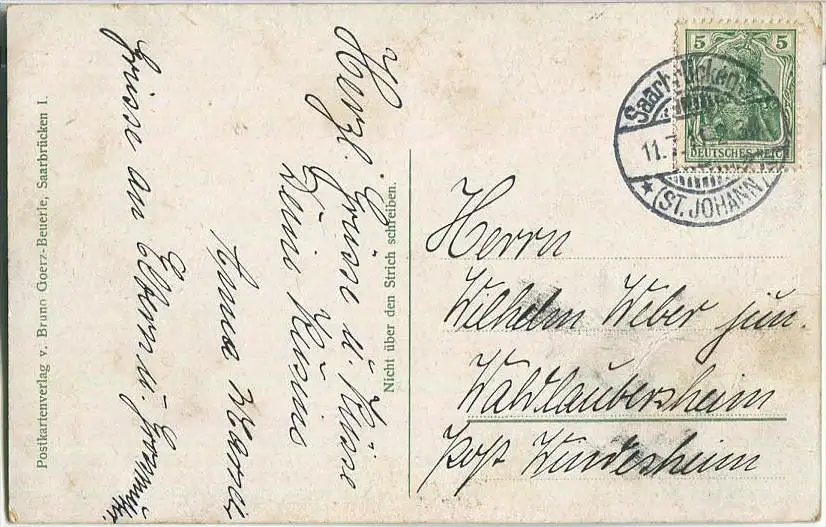 Postkartenverlag v. Bruno Goerz-Beuerle, Saarbrücken I.
Herzl. Grüsse u. Küsse
Deine Kusine
Anna
Grüsse an Eltern u.
Nicht über den Strich schreiben.
5 5
DEUTSCHES REICH
Saarbrücken
11.
(ST. JOHANN)
Herrn
Wilhelm Weber jun.
Waldlaubersheim
Post Windesheim